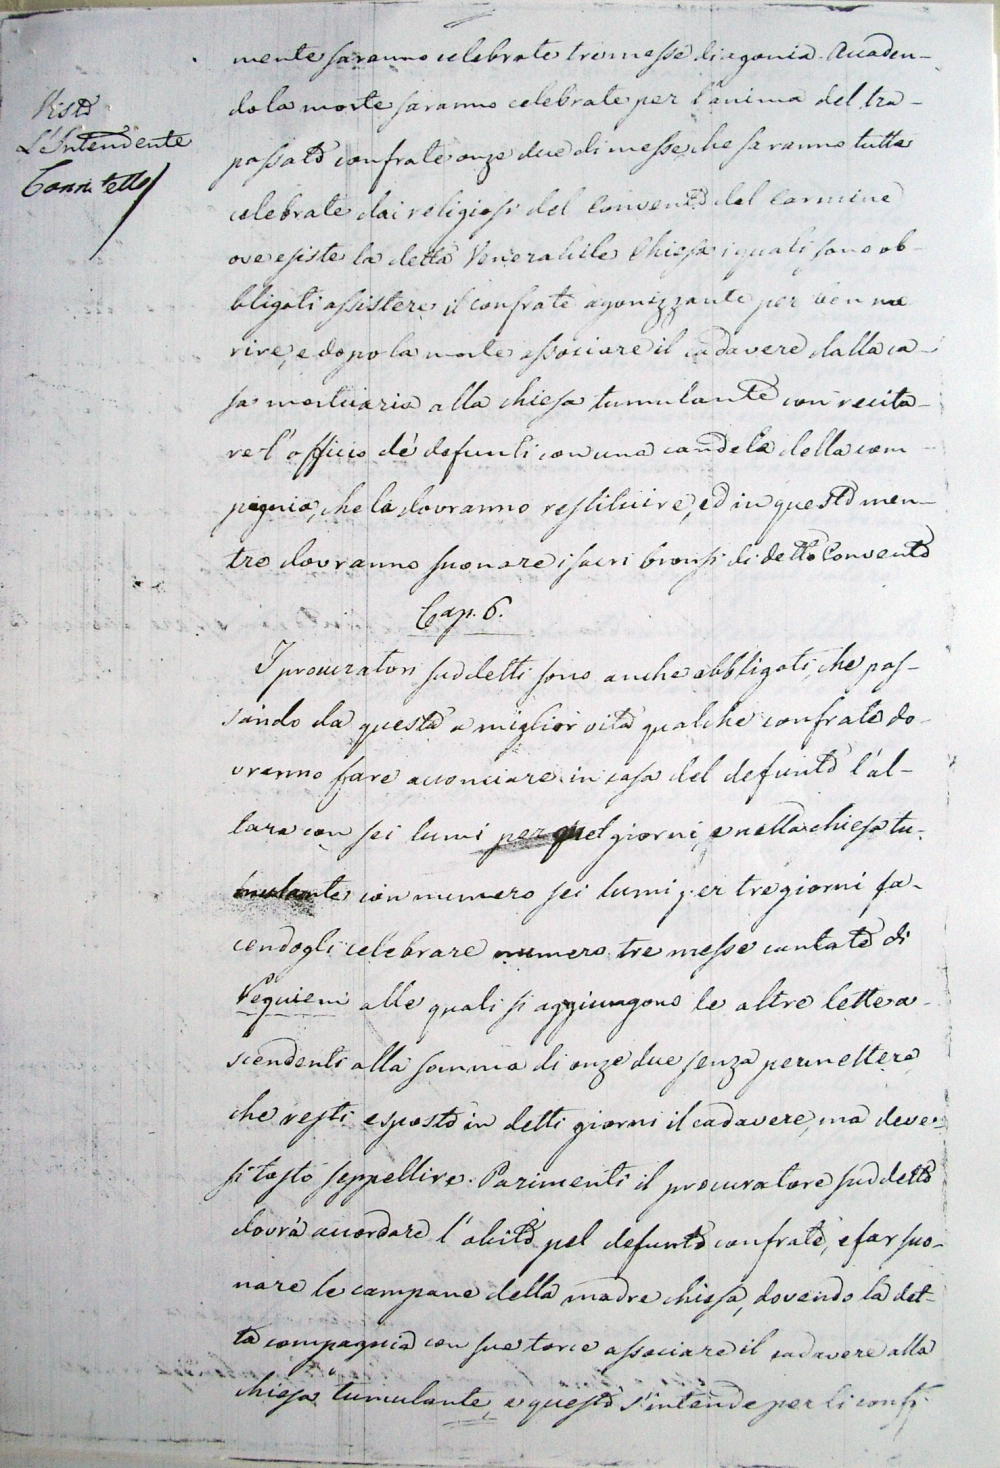 Visto
L'Intendente
mente saranno celebrate tre messe di agonia. Accaden-
do la morte saranno celebrate per l'anima del tra-
passato confrate onze due di messe, che saranno tutte
celebrate dai religiosi del Convento del Carmine
ove esiste la detta Venerabile Chiesa i quali sono ob-
bligati assistere il confrate agonizzante per ben mo
rire, e dopo la morte associare il cadavere dalla ca-
sa mortuaria alla chiesa tumulante con recita-
re l'officio de' defunti con una candela della com
pagnia, che la dovranno restituire, ed in questo men-
tre dovranno suonare i sacri bronzi di detto Convento
Cap. 6.
I procuratori suddetti sono anche obbligati, che pas-
sando da questa a miglior vita qualche confrate do-
vranno fare acconciare in casa del defunto l'al-
tare con sei lumi per quel giorni, e nella chiesa tu-
mulante con numero sei lumi per tre giorni fa-
cendogli celebrare numero tre messe cantate di
Requiem alle quali si aggiungono le altre lette a-
scendenti alla somma di onze due senza permettere
che resti esposto in detti giorni il cadavere, ma deve-
si tosto seppellire. Parimenti il procuratore suddetto
dovrà accordare l'abito pel defunto confrate, e far suo-
nare le campane della madre chiesa, dovendo la det-
ta compagnia con sue torce associare il cadavere alla
chiesa tumulante, e questo s'intende per li confr.